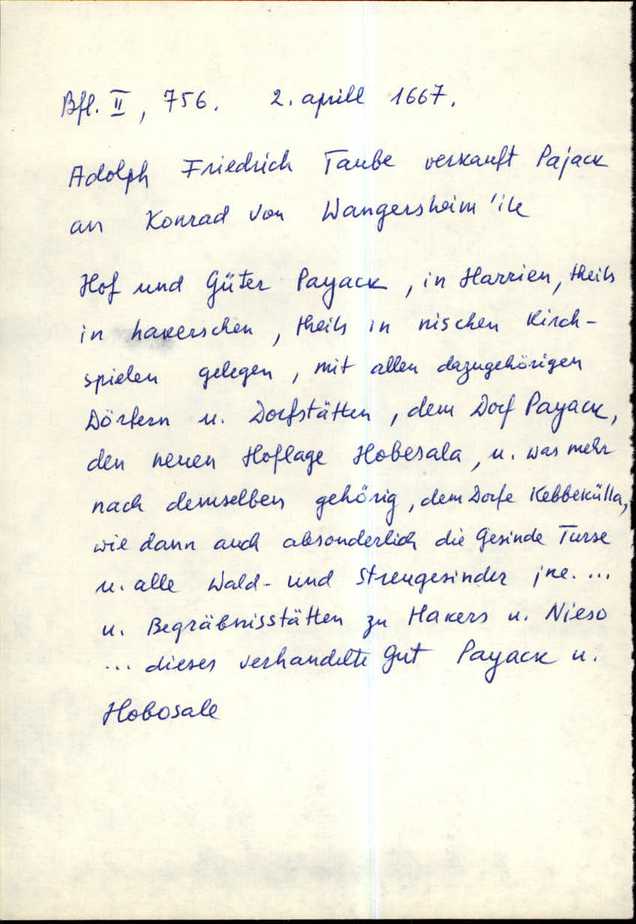 Bfl. II, 756. 2. aprill 1667.
Adolph Friedrich Taube verkauft Pajack
an Konrad von Wangersheim'ile
Hof und Güter Payack, in Harrien, theils
in hakerschen, theils in nischen Kirch-
spielen gelegen, mit allen dazugehörigen
Dörfern u. Dorfstätten, dem Dorf Payack,
den neuen Hoflage Hobesala, u. was mehr
nach demselben gehörig, dem Dorfe Kebbekülla,
wie dann auch absonderlich die Gesinde Turse
u. alle Wald- und Streugesinder jne. ...
u. Begräbnisstätten zu Hakers u. Nieso
... dieses verhandelte Gut Payack u.
Hobosale